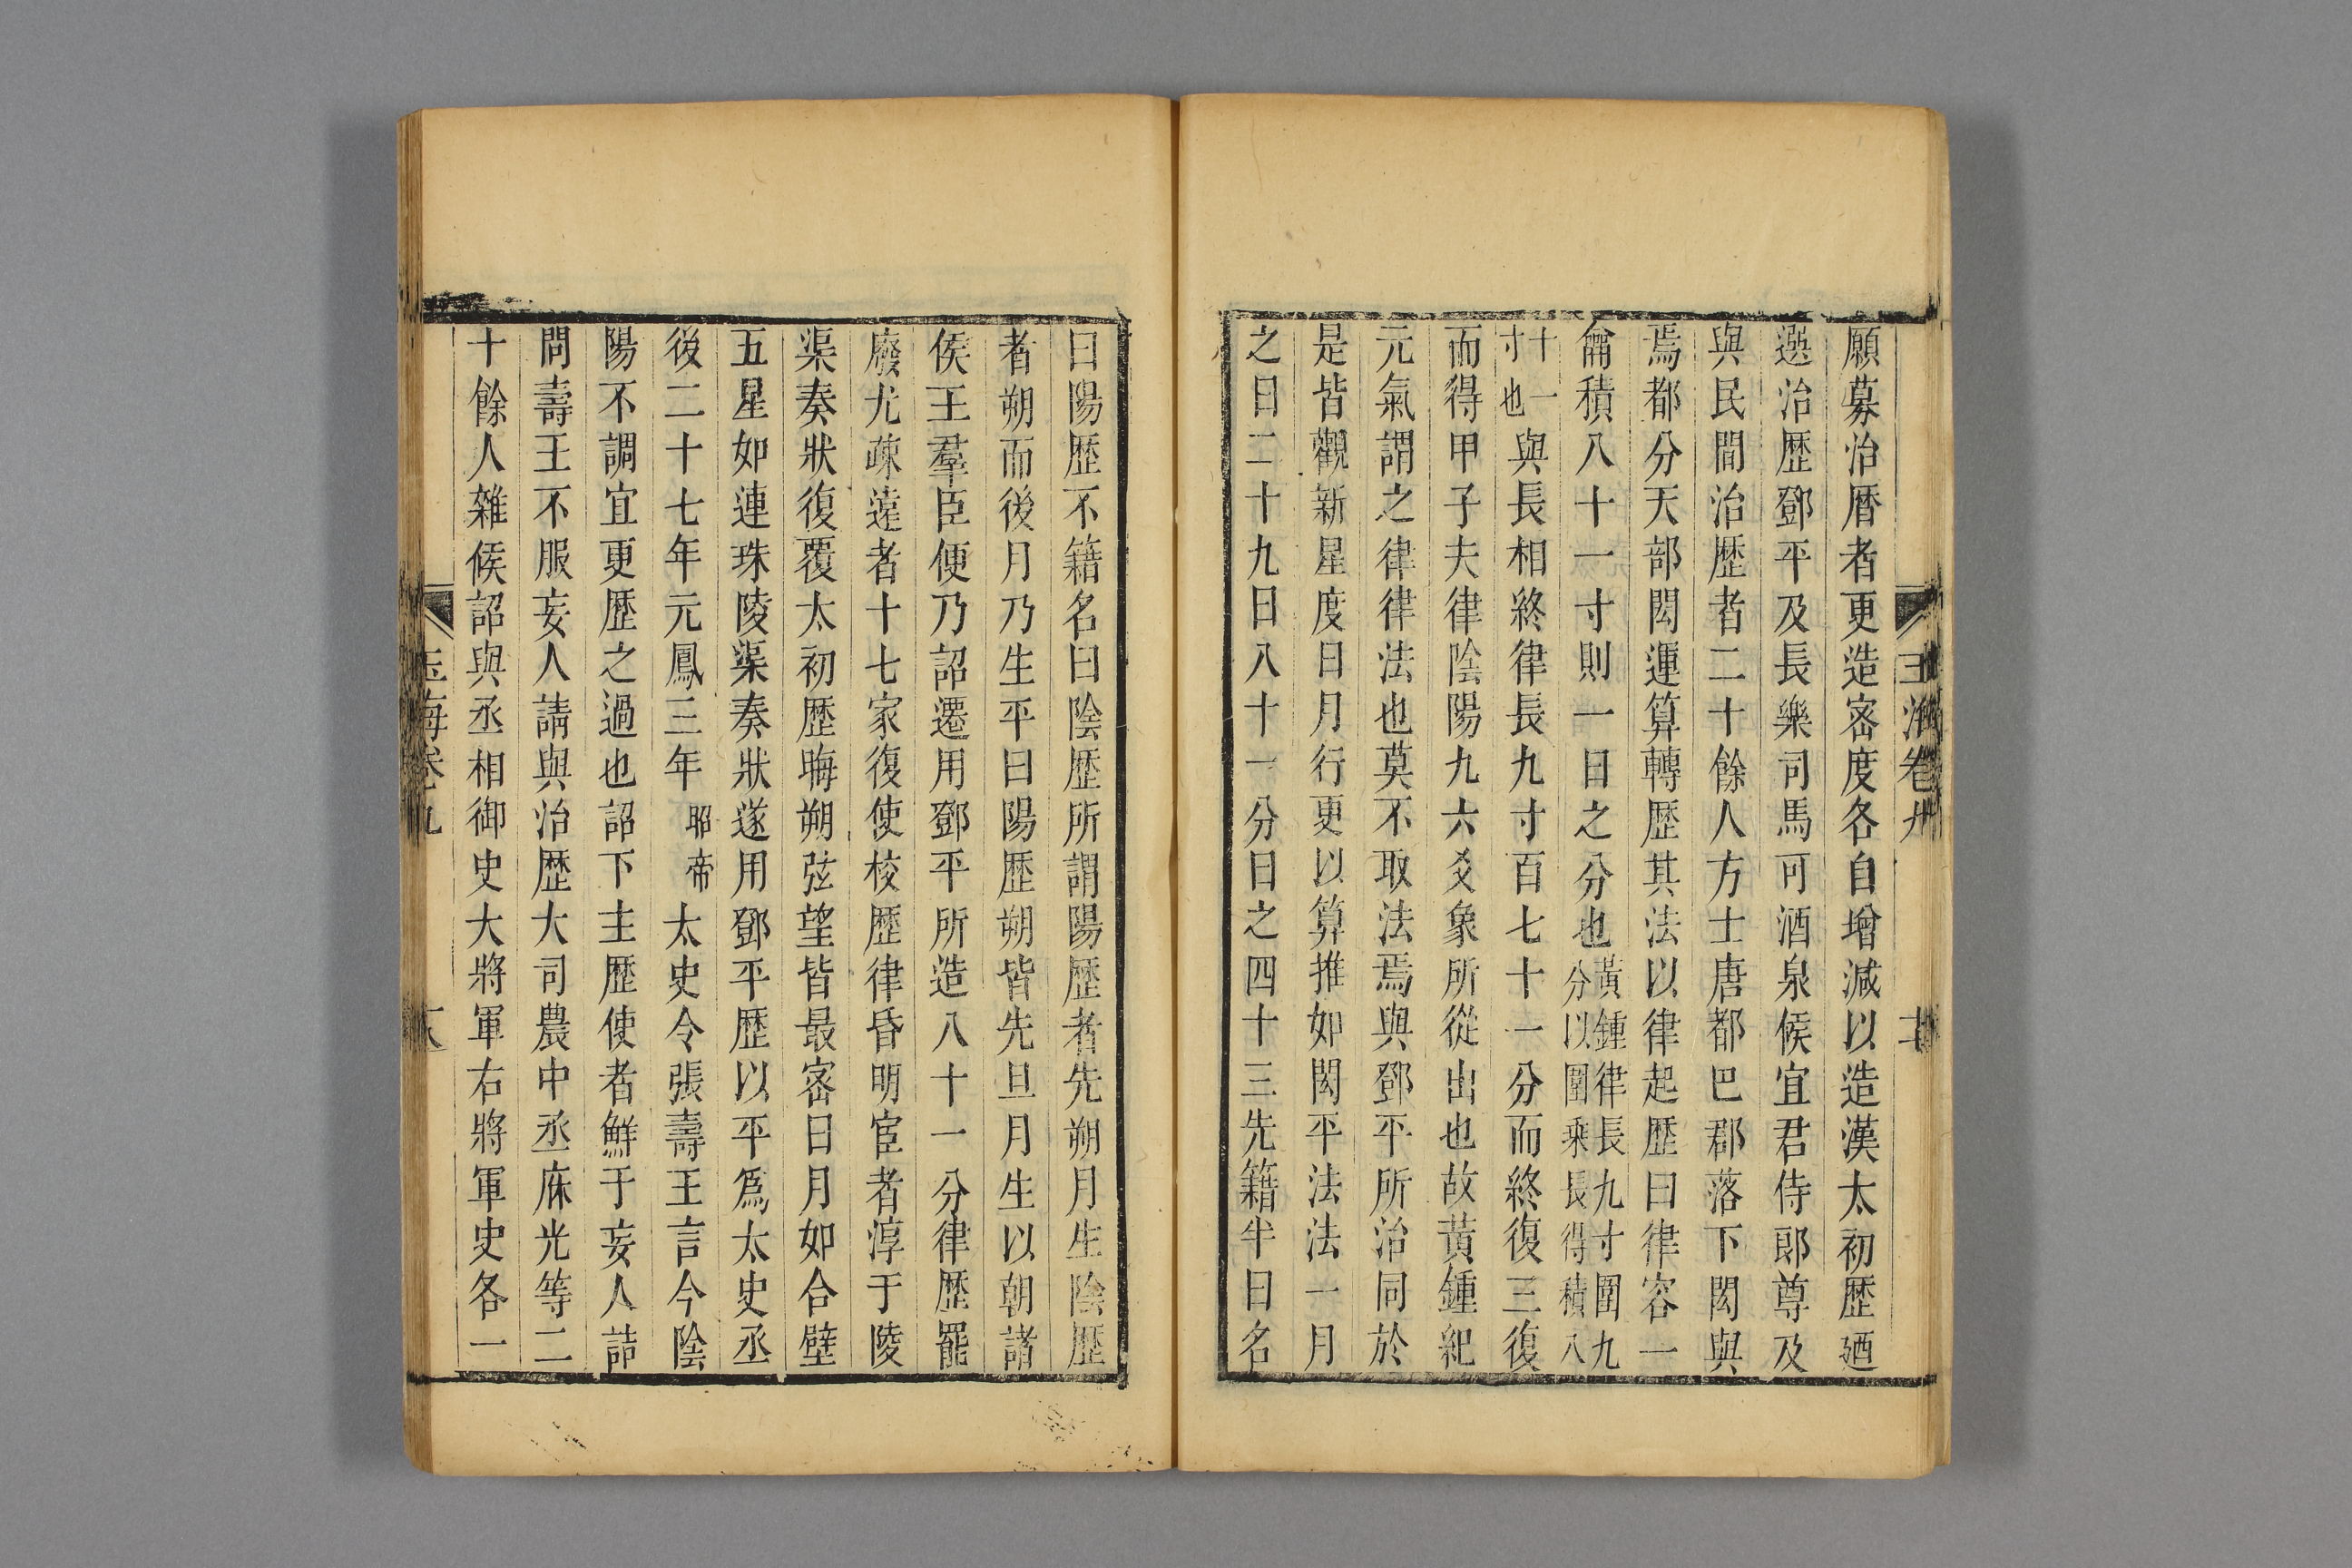 願募治曆者更造密度各自增減以造漢太初歷廼
選治歷鄧平及長樂司馬可酒泉候宜君侍郎尊及
與民間治歷者二十餘人方士唐都巴郡落下閎與
焉都分天部閎運算轉歷其法以律起歷曰律容一
龠積八十一寸則一日之分也黃鍾律長九寸圍九分以圍乘長得積八
十一寸也與長相終律長九寸百七十一分而終復三復
而得甲子夫律陰陽九六爻象所從出也故黃鍾紀
元氣謂之律律法也莫不取法焉與鄧平所治同於
是皆觀新星度日月行更以算推如閎平法法一月
之日二十九日八十一分日之四十三先籍半日名
曰陽歷不籍名曰陰歷所謂陽歷者先朔月生陰歷
者朔而後月乃生平曰陽歷朔皆先旦月生以朝諸
侯王羣臣便乃詔遷用鄧平所造八十一分律歷罷
廢尤疎遠者十七家復使校歷律昏明宦者淳于陵
渠奏狀復覆太初歷晦朔弦望皆最密日月如合璧
五星如連珠陵渠奏狀遂用鄧平歷以平爲太史丞
後二十七年元鳳三年昭帝太史令張壽王言今陰
陽不調宜更歷之過也詔下主歷使者鮮于妄人詰
問壽王不服妄人請與治歷大司農中丞麻光等二
十餘人雜候詔與丞相御史大將軍右將軍史各一
玉海卷九